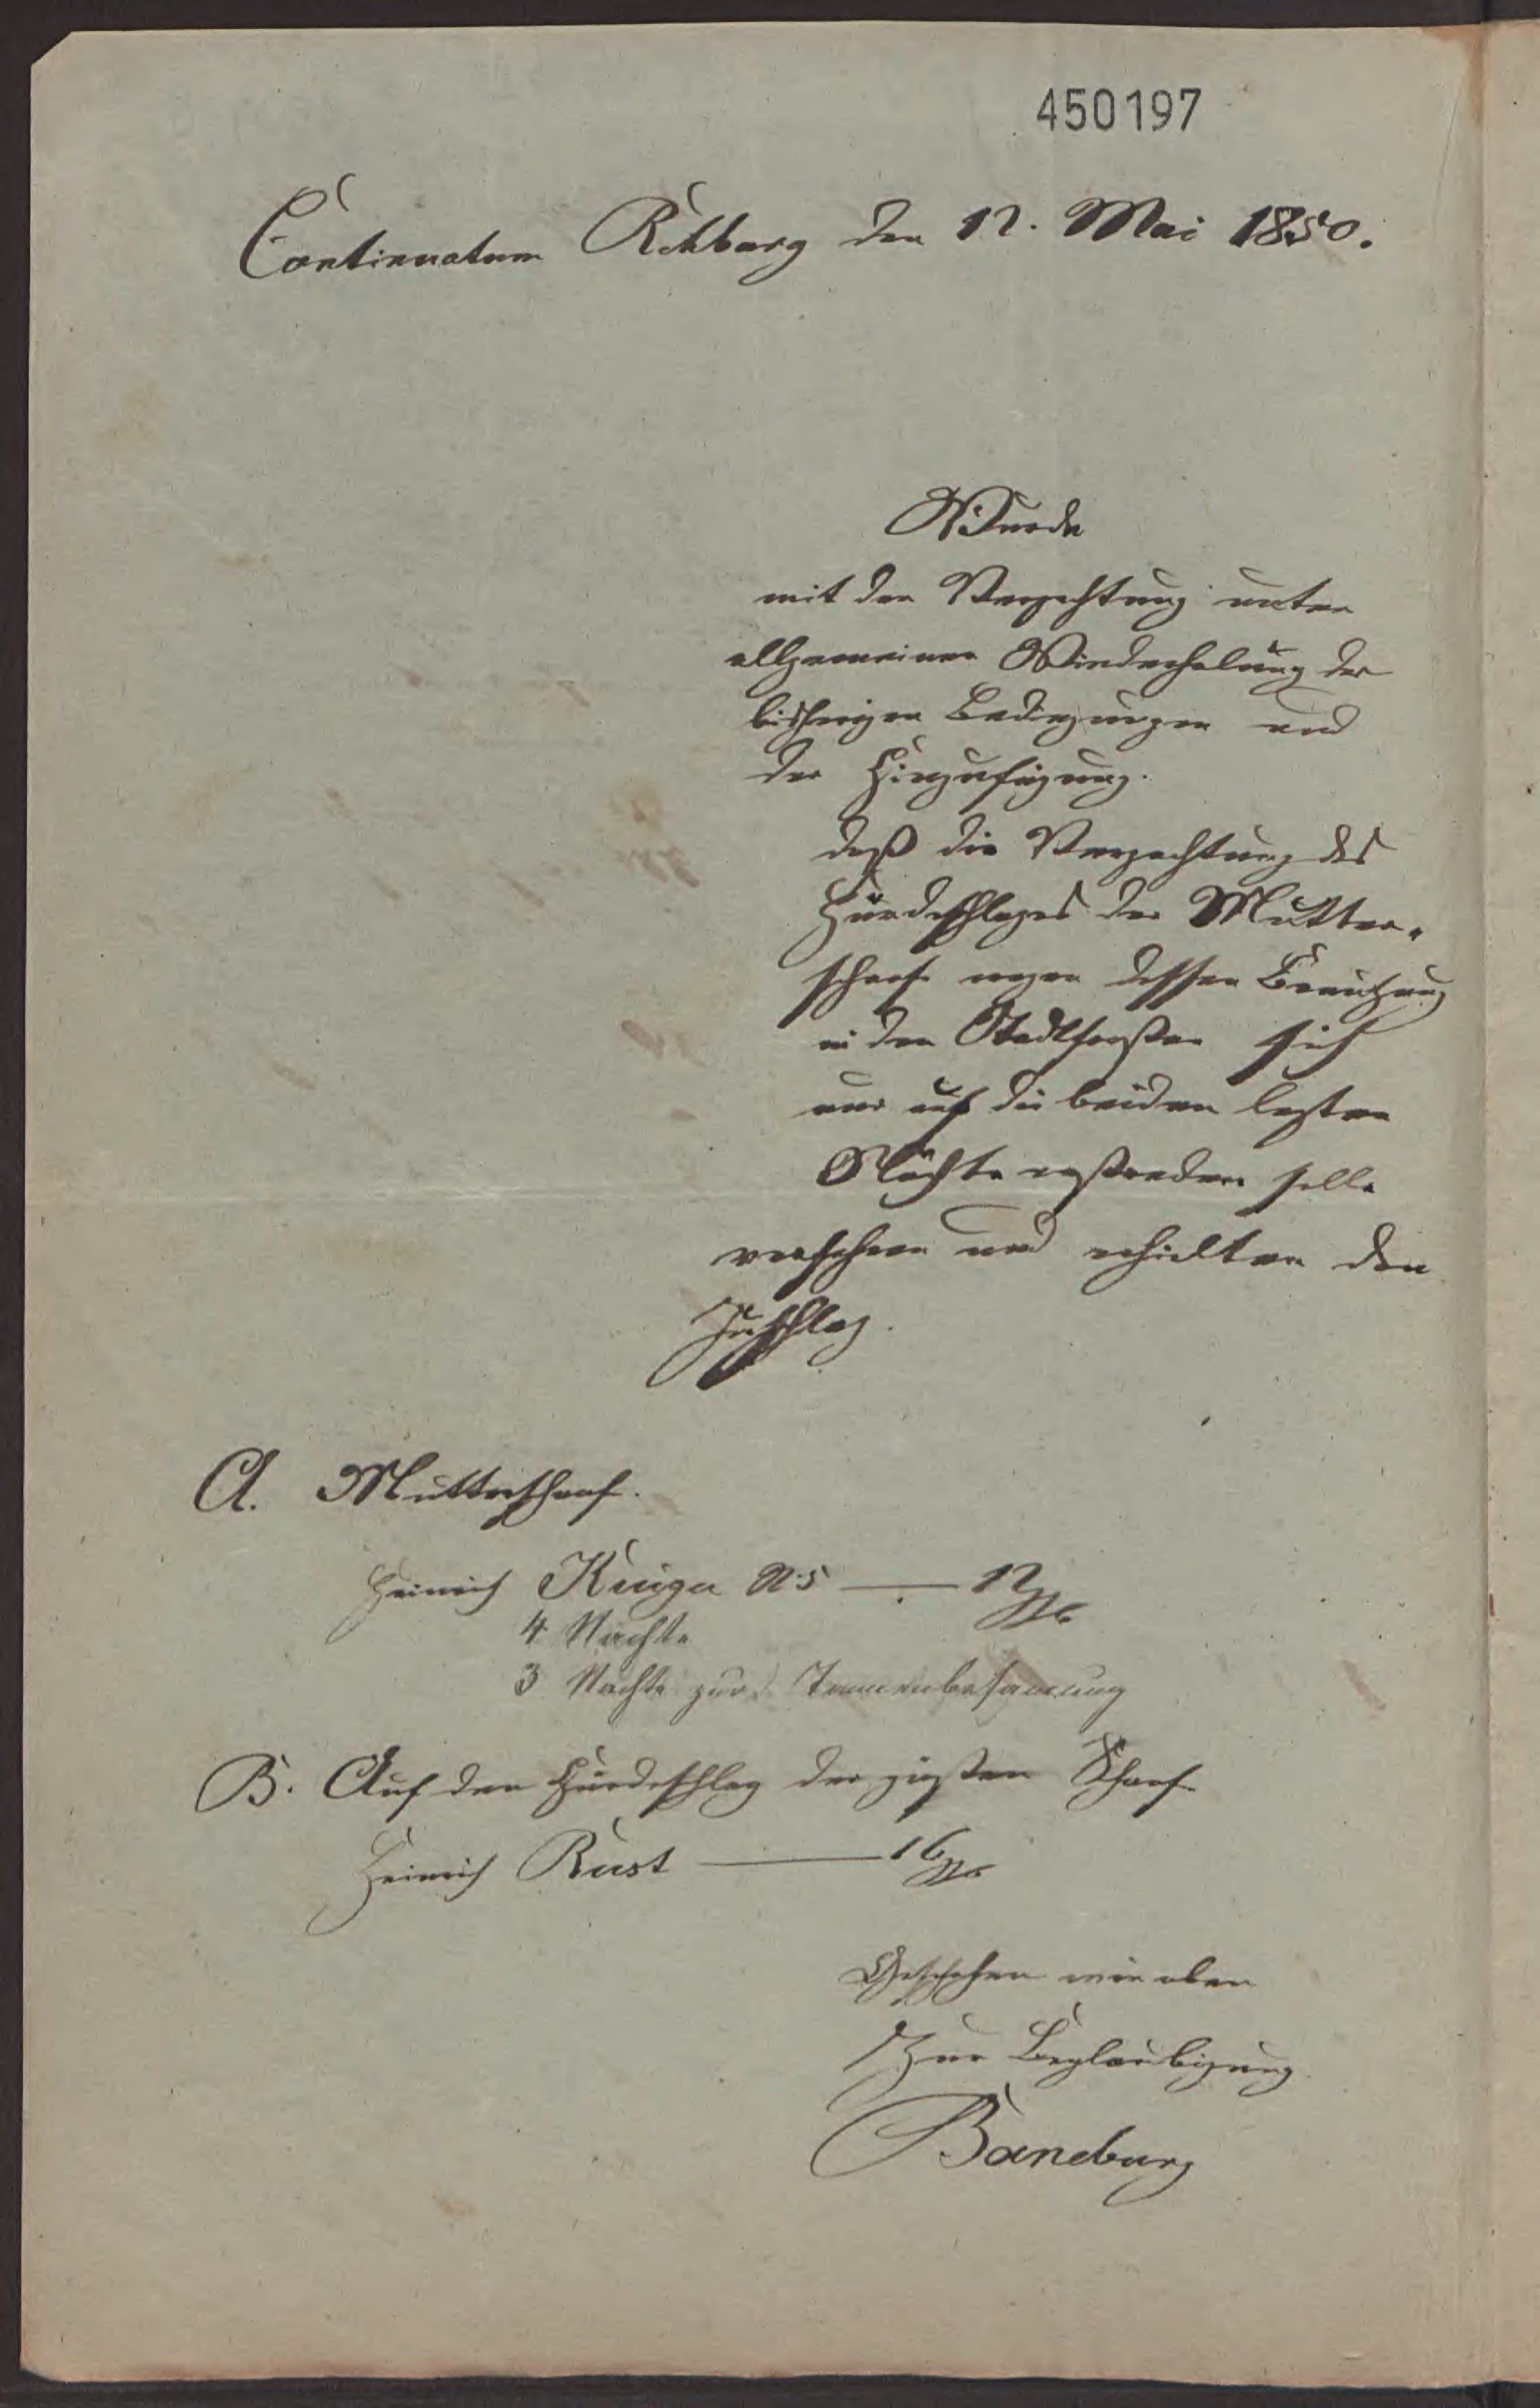 450197
Continuatum Rehburg den 12. Mai 1850.
Wurde
mit der Verpachtung unter
allgemeiner Wiederholung der
bisherigen Bedingungen und
der Hinzufügung.
daß die Verpachtung des
Hürdeschlages der Mutter-
schafe wegen dessen Benutzung
in den Stadtforsten sich
nur auf die beiden lezten
Nächte erstrecken solle
verfahren und erhielten den
Zuschlag.
A. Mutterschafe.
Heinrich N. 5 — 12
4 Nächte
3 Nächte zur Tannenbesamung
B. Auf den Hürdeschlag der güsten Schafe
Heinrich Rust — 16
Geschehen wie oben
Zur Beglaubigung
Baneburg